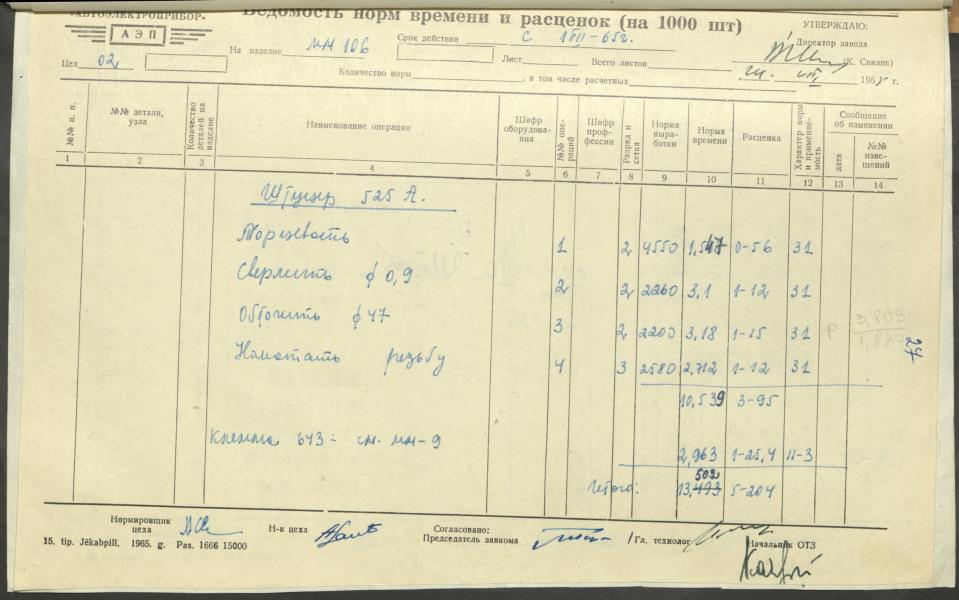 "АВТОЭЛЕКТРОПРИБОР"
АЭП
Ведомость норм времени и расценок (на 1000 шт)
УТВЕРЖДАЮ:
Директор завода
(К. Свилпе)
VII 1965 г.
Цех 02
На изделие МН 106
Срок действия с 1 VII-65г.
Лист Всего листов
Количество норм , в том числе расчетных
№№ п. п.
№№ детали, узла
Количество деталей на изделие
Наименование операции
Шифр оборудования
№№ операций
Шифр профессии
Разряд и сетка
Норма выработки
Норма времени
Расценка
Характер норм и применяемость
Сообщение об изменении
дата
№№ извещений
1 2 3 4 5 6 7 8 9 10 11 12 13 14
Штуцер 525 А.
Торцевать 1 2 4550 0-56 31
Сверлить ф 0,9 2 2 2260 3,1 1-12 31
Обточить ф 47 3 2 2203 3,18 1-15 31 Р 3,809
резьбу 4 3 2580 2,712 1-12 31
27
10,539 3-95
643 - см. мн-9 2,963 1-25,4 11-3
502
Итого: 13,493 5-204
Нормировщик цеха
Н-к цеха
Согласовано:
Председатель завкома
/Гл. технолог
Начальник ОТЗ
15. tip. Jēkabpilī. 1965. g. Pas. 1666 15000